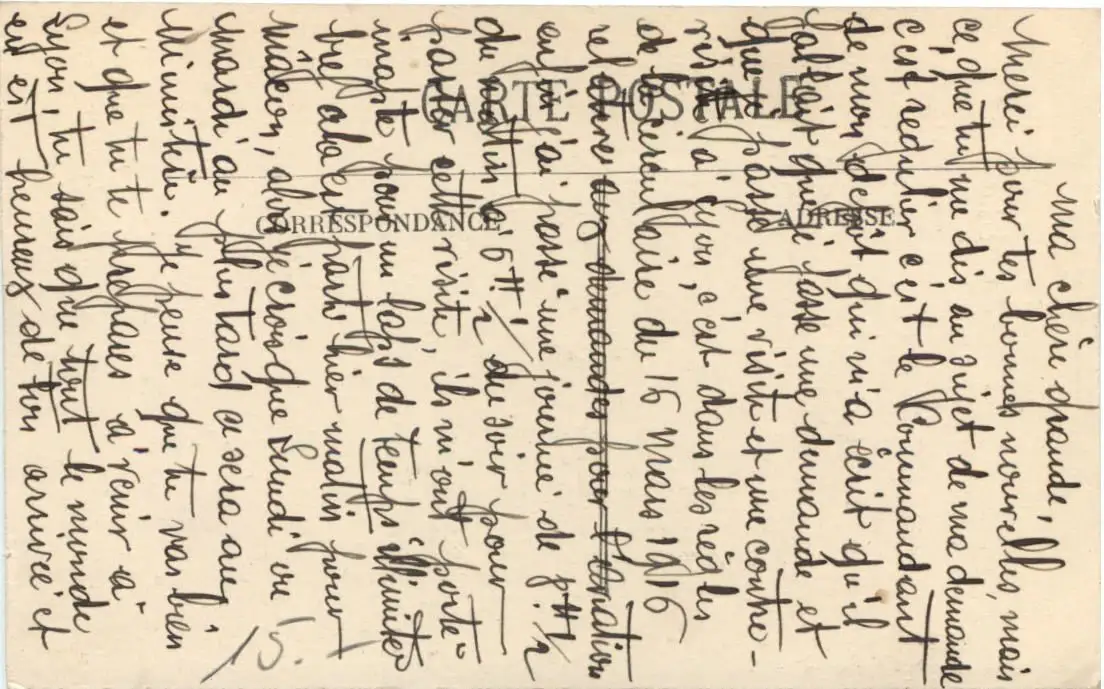 Ma chère grande,
Merci pour tes bonnes nouvelles, mais
ce que tu me dis au sujet de ma demande
c'est régulier c'est le Commandant
de mon dépôt qui m'a écrit qu'il
fallait que je fasse une demande et
que je passe une visite et une contre-
visite à Lyon, c'est dans les règles
de la circulaire du 16 Mars 1916
aux demandes pour l'aviation
enfin j'ai passé une journée de 7H 1/2
du matin à 6H 1/2 du soir pour
passer cette visite, ils m'ont porté
inapte pour un laps de temps illimité
bref cela est parti hier matin pour
Mâcon, alors je crois que Lundi ou
Mardi au plus tard ce sera au
Ministère. Je pense que tu vas bien
et que tu te prépares à venir à
Lyon, tu sais que tout le monde
en est heureux de ton arrivée et
CARTE POSTALE
CORRESPONDANCE
ADRESSE
15.-